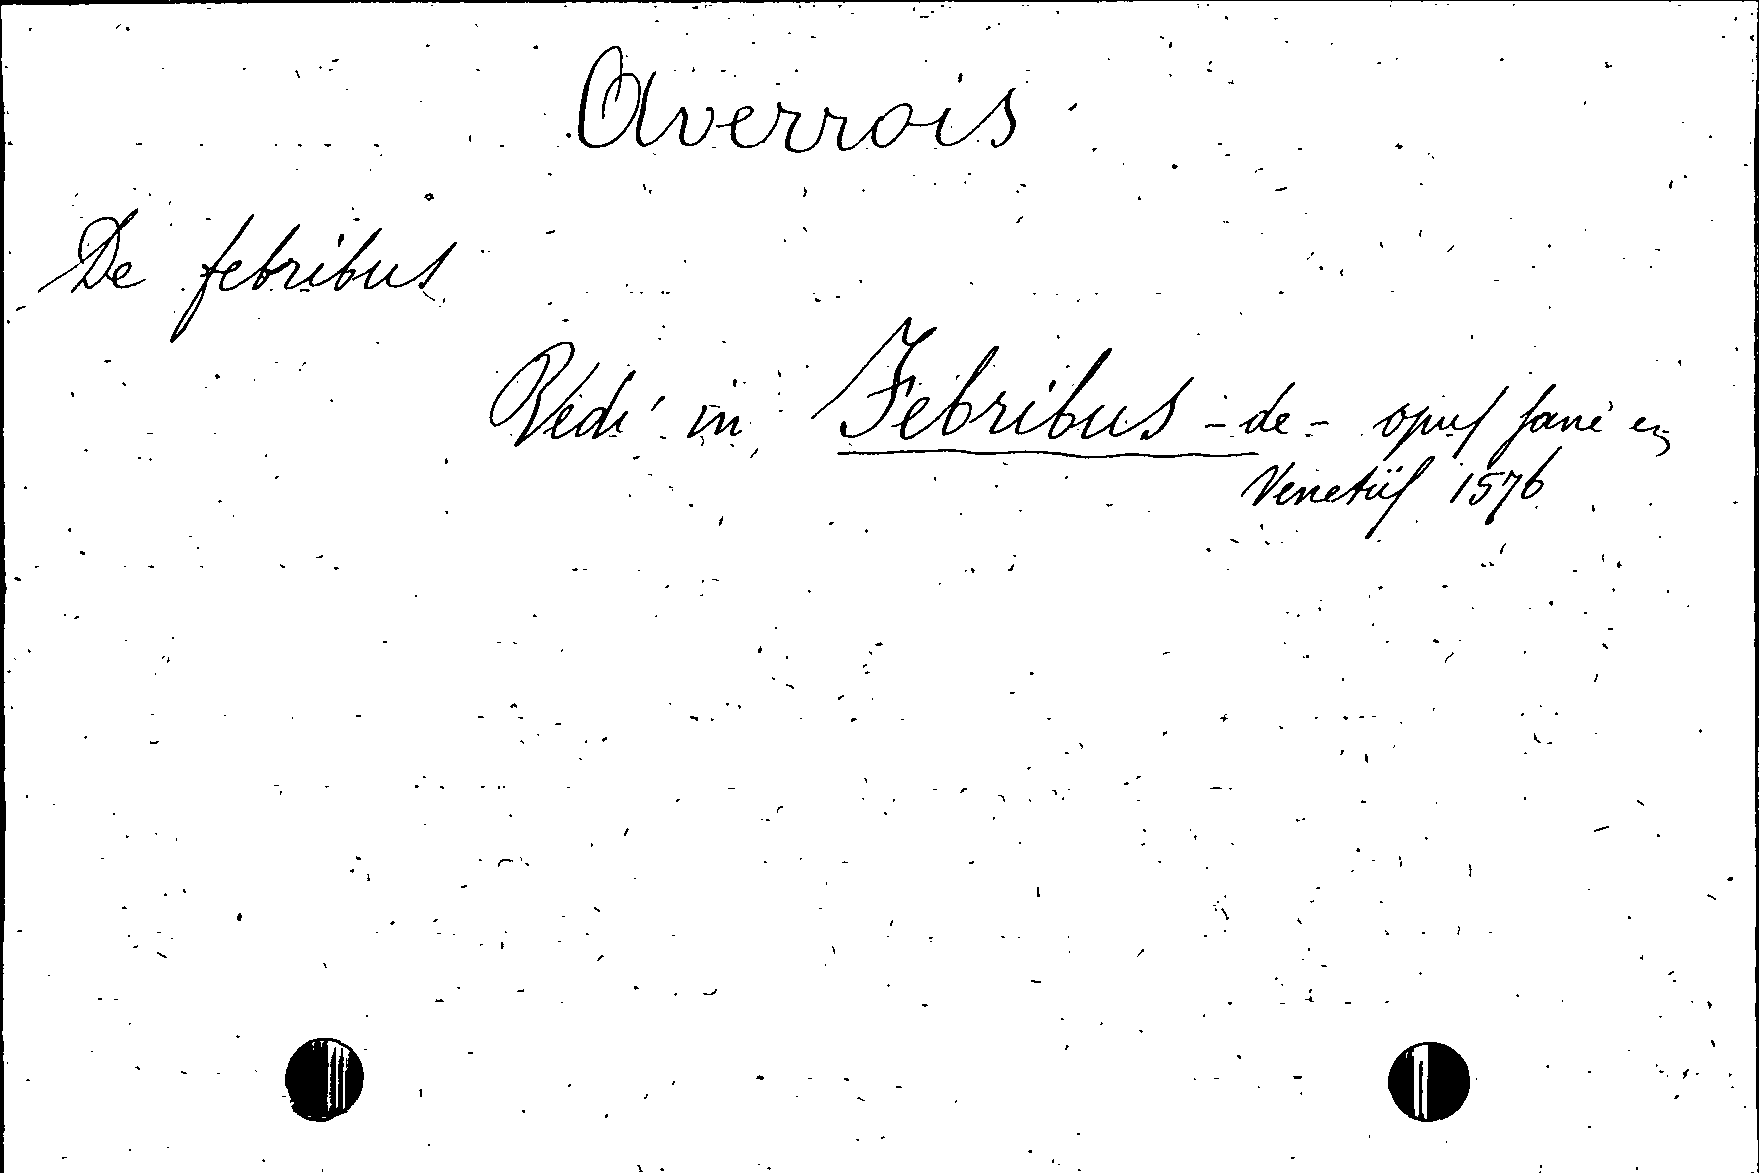 Averrois
De febribus
Vedi in Febribus - de - opus sane
Venetiis 1576